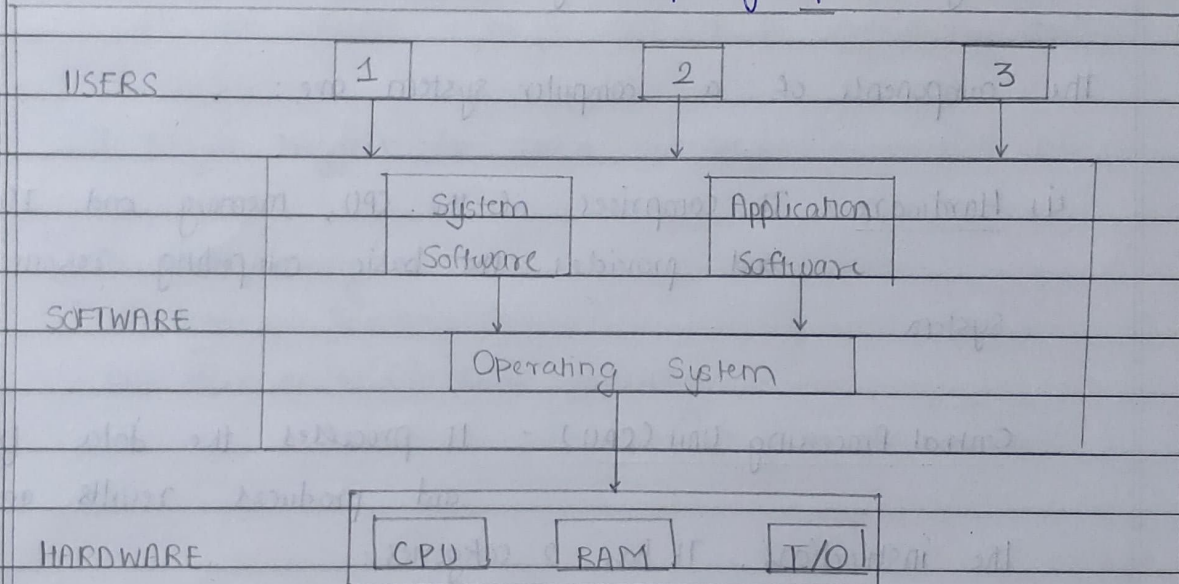 USERS 1 2 3
System Application
Software Software
SOFTWARE
Operating System
HARDWARE CPU RAM I/O